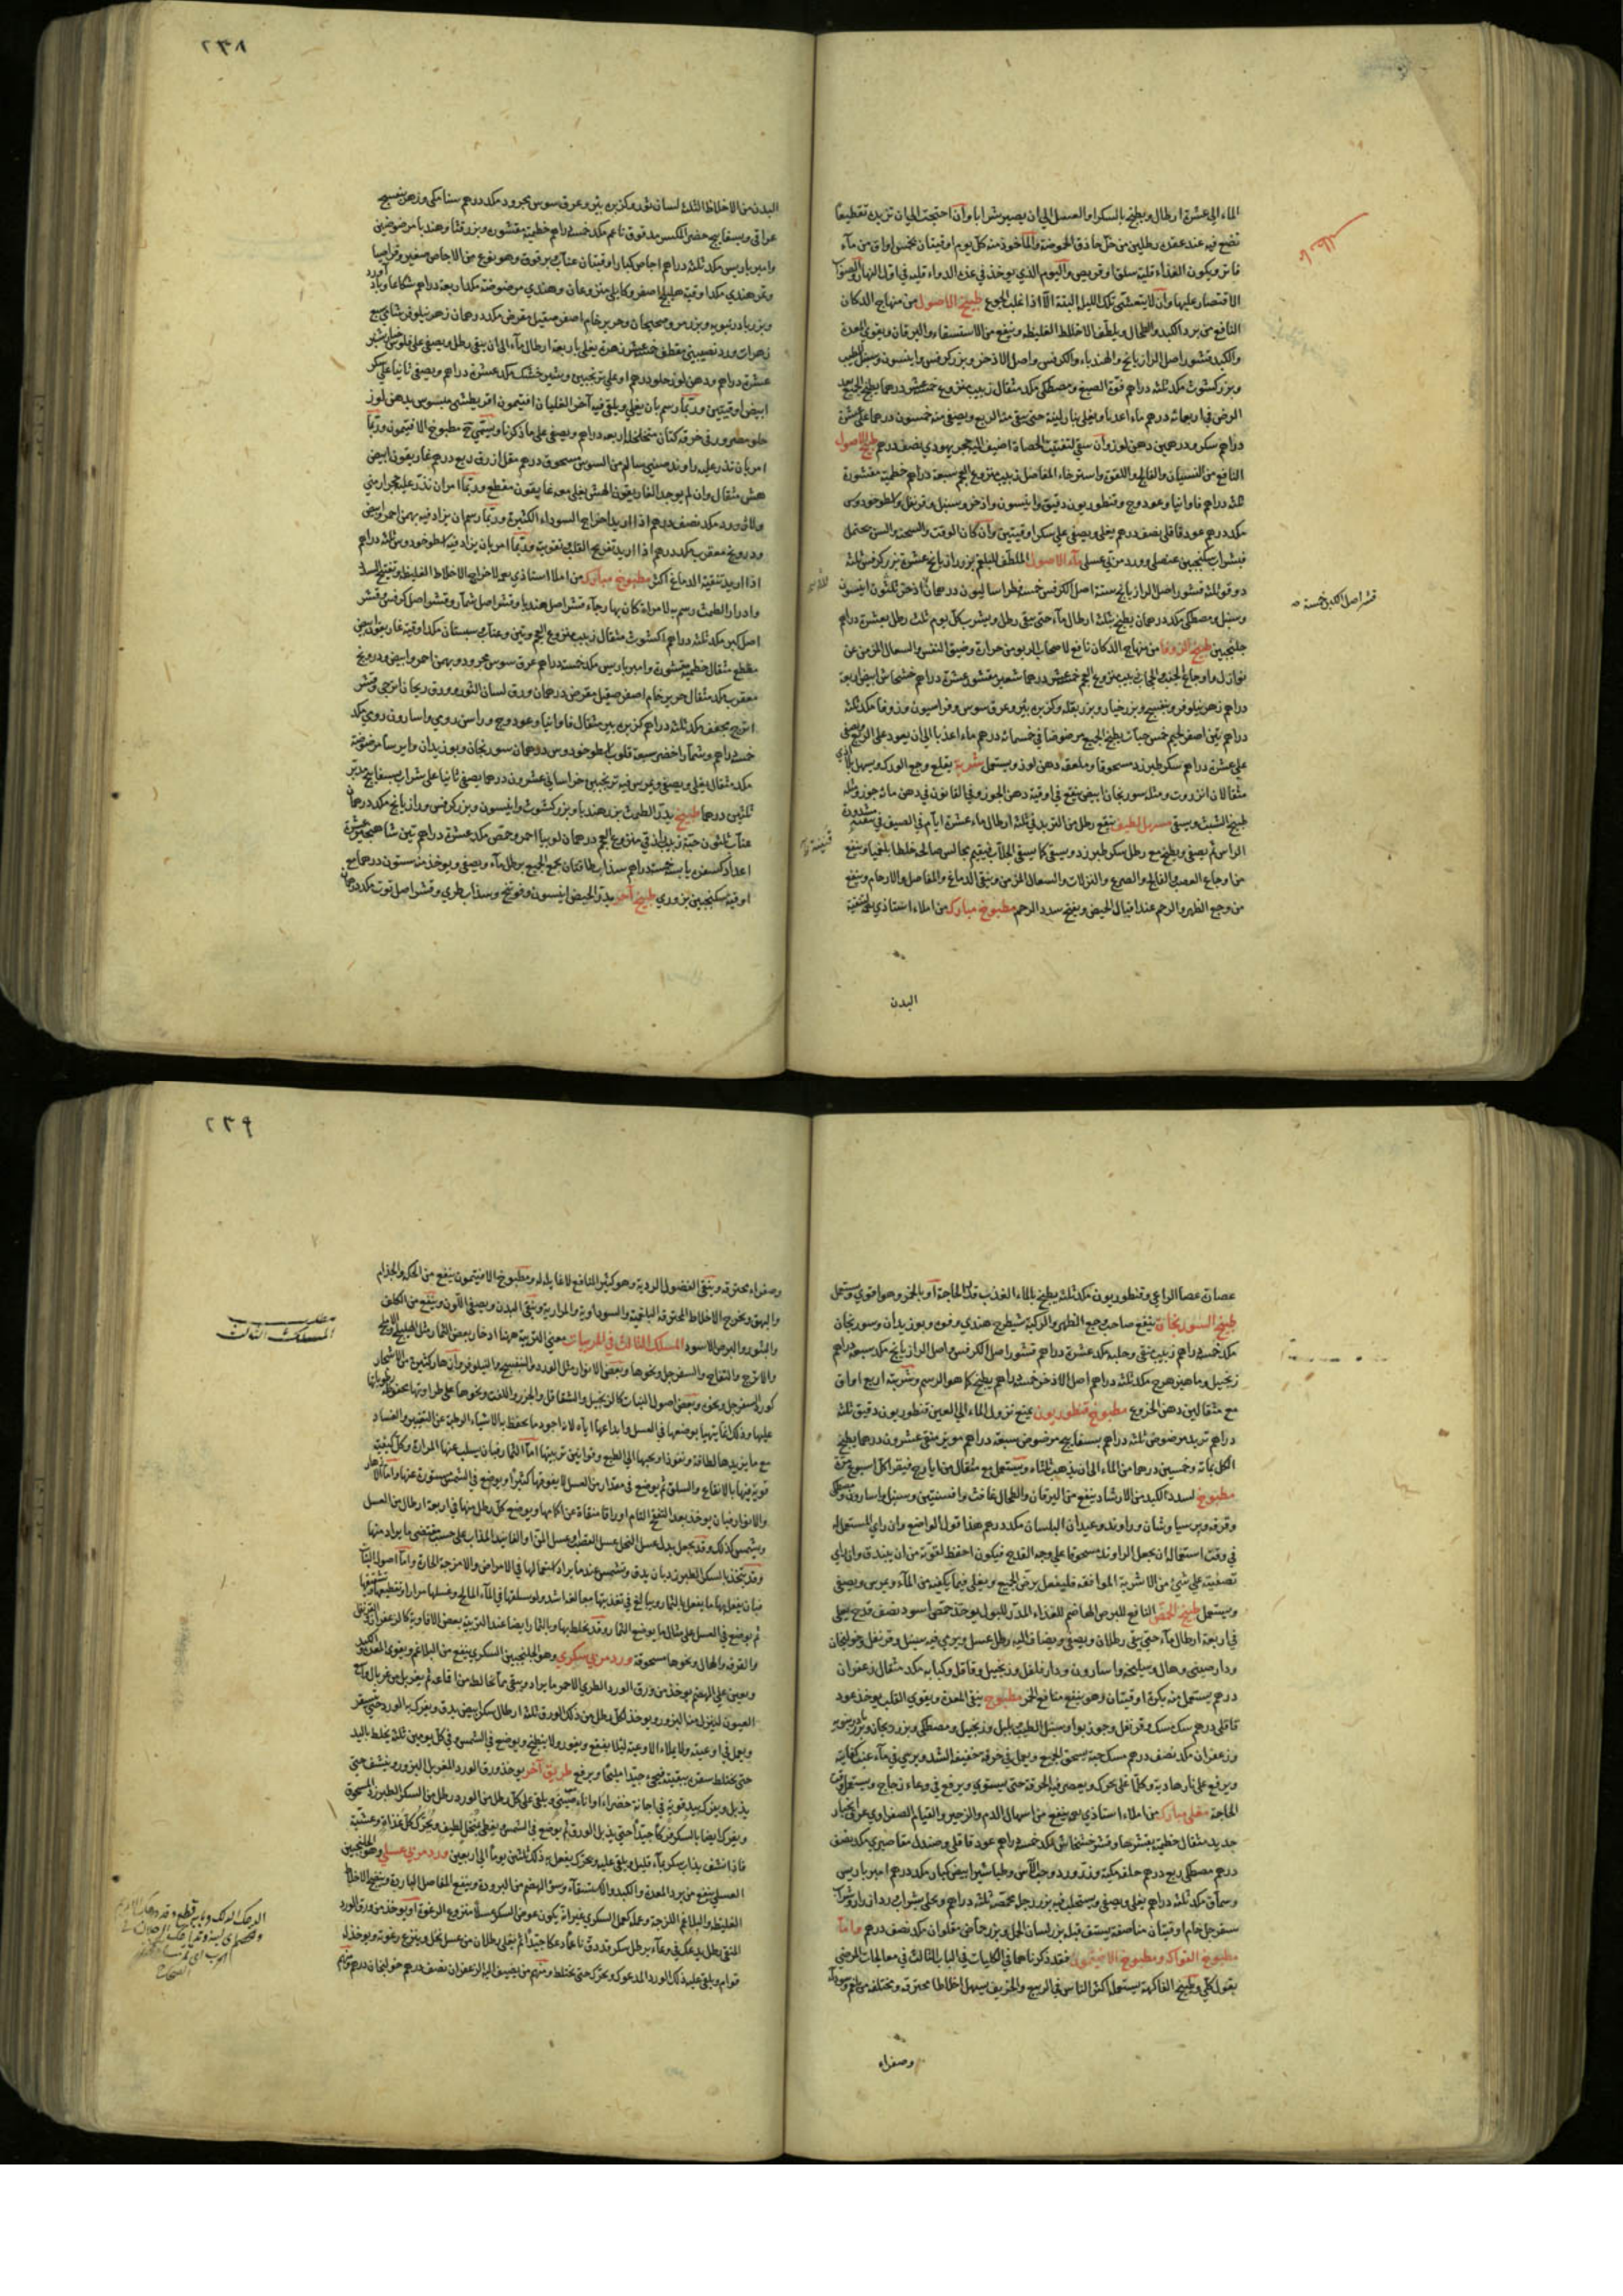 الماء الى عشرة ارطال ويطبخ بالسكر او العسل الى ان يصير شرابا وان احتجت الى ان تزيد تقطيعا
تضع فيه عند عقده رطلين من خل حاذق الحموضة والماخوذ منه كل يوم اوقيتان بخمس اواق من ماء
فاتر ويكون الغذاء قلية سلق او قريص واليوم الذي يوخذ في غده الدواء قليه في اول النهار والصواب
الاقتصار عليها وان لا يتعشى تلك الليلة البتة الا اذا غلب الجوع طبيخ الاصول من منهاج الدكان
النافع من برد الكبد والطحال ويلطف الاخلاط الغليظه وينفع من الاستسقاء واليرقان ويقوي المعدة
والكبد قشور اصل الرازيانج والهندباء والكرفس واصل الاذخر وبزر كرفس وانيسون وسنبل الطيب
وبزر كشوث مكد ثلثه دراهم فوة الصبغ ومصطكى مكد مثقال زبيب منزوع خمسة عشر درهما يطبخ الجميع بعد
الرض في اربعمائه درهم ماء اعذبا ويغلى بنار لينة حتى يبقى منه الربع ويصفى منه خمسون درهما على عشرة
دراهم سكر ودرهمين دهن لوز وان سقي لتفتيت الحصاة اضيف اليه حجر يهودي نصف درهم طبيخ الاصول
النافع من النسيان والفالج واللقوة واسترخاء المفاصل زبيب منزوع العجم سبعة دراهم خطمية مقشورة
ثلثه دراهم فاوانيا وعود وج وقنطوريون دقيق وانيسون واذخر وسنبل وقرنفل واسطوخودوس
مكد درهم عود قاقلي نصف درهم يغلى ويصفى على سكر اوقيتين وان كان الوقت والسحنة والسن يحتمل
فبشراب سكنجبين عنصلي وورد مربى عسلي ماء الاصول الملطف للبلغم بزر رازيانج عشرة بزر كرفس ثلثه
دوقو ثلثه قشور اصل الرازيانج ستة اصل الكرفس خمسة فطراساليون درهمان اذخر ثلثون انيسون
وسنبل ومصطكى مكد درهمان يطبخ بثلثه ارطال ماء حتى يبقى رطل ويشرب كل يوم ثلث رطل بعشرة دراهم
جلنجبين طبيخ الزوفا من منهاج الدكان نافع لاصحاب الربو من حرارة وضيق النفس والسعال المزمن عن
نوازل واوجاع الجنب والحجاب زبيب منزوع العجم خمسة عشر درهما شعير مقشور عشرة دراهم خشخاش ابيض اربعة
دراهم زهر نيلوفر وبنفسج وبزر خيار وبزر بقله وكزبره بئر وعرق سوس وفراسيون وزوفا مكد ثلثه
دراهم تين اصفر لحيم خمس حبات يطبخ الجميع مرضوضا في خمسمائه درهم ماء اعذبا الى ان يعود على الربع ويصفى
على عشرة دراهم سكر طبرزد مسحوقا وملعقه دهن لوز ويستعمل شربة يقلع وجع الورك ويسهل بلا اذى
مثقالان انزروت ومثله سورنجان ابيض ينقع في اوقية دهن الجوز وفي القانون في دهن مائه جوزة ومثله
طبيخ الشبث ويسقى مسهل لطيف ينقع رطل من التربد في ثلثه ارطال ماء عشرة ايام في الصيف في سقنينة مشدودة
الراس ثم يصفى ويطبخ مع رطل سكر طبرزد ويسقى كما يسقى الجلاب فيقيم مجالس صالحه خلطا بلغميا وينفع
من اوجاع العصب والفالج والصرع والنزلات والسعال المزمن وينقى الدماغ والمفاصل والارحام وينفع
من وجع الظهر والرحم عند اقبال الحيض ويفتح سدد الرحم مطبوخ مبارك من املاء استاذي لتنقية
البدن
قشر اصل الكبر خمسة صح
٢٣٨
البدن من الاخلاط الثلثه لسان ثور وكزبره بئر وعرق سوس مجرود مكد درهم سنا مكي وزهر بنفسج
عراقي وبسفايج خضر المكسر مدقوق ناعم مكد خمسة دراهم خطمية مقشوره وبزر قثا وهندبا مرضوضين
وامبرباريس مكد ثلثه دراهم اجاص كبار اوقيتان عناب برقوق وهو نوع من الاجاص صغير وقراصيا
وتمر هندي مكد اوقية هليلج اصفر وكابلي منزوعان وهندي مرضوضة مكد اربعة دراهم شكاعا وباذاورد
وبزر بادرنبويه وبزر مرو صحيحان وحرير خام اصفر صقيل مقرض مكد درهمان زهر نيلوفر شامي سبع
زهرات ورد نصيبيني مقطف خمسة عشر زهرة يغلى باربعة ارطال ماء الى ان يبقى رطل ويصفى على فلوس خيار شنبر
عشرة دراهم ودهن لوز حلو درهم او على ترنجبين وشير خشك مكد عشرة دراهم ويصفى ثانيا على سكر
ابيض اوقيتين وربما رسم بان يغلى ويلقى فيه آخر الغليان افتيمون اقريطشي مبسوس بدهن لوز
حلو مصرور في خرقه كتان متخلخله اربعة دراهم ويصفى على ما ذكرنا ويسمى ح مطبوخ الافتيمون وربما
امر بان تذر عليه راوند صيني سالم من السوس مسحوق درهم مقل ازرق ربع درهم غاريقون ابيض
هش مثقال وان لم يوجد الغاريقون الهش يغلى معه غاريقون مقطع وربما امر ان تذر عليه حجر ارمني
ولازورد مكد نصف درهم اذا اريد اخراج السوداء الكثيرة وربما رسم ان يزاد فيه بهمن احمر وابيض
ودرونج معقرب مكد درهم اذا اريد تفريح القلب وتقويته وربما امر بان يزاد فيه اسطوخودوس ثلثه دراهم
اذا اريد تنقية الدماغ اكثر مطبوخ مبارك من املا استاذي رحمه الله لاخراج الاخلاط الغليظه وتفتيح السدد
وادرار الطمث رسم به لامراة كان بها رجاء قشر اصل هندبا وقشر اصل شمار وقشر اصل كرفس وقشر
اصل كبر مكد ثلثه دراهم اكشوث مثقال زبيب منزوع العجم وتين وعناب سبستان مكد اوقية غاريقون ابيض
مقطع مثقال خطمية مقشورة وامبرباريس مكد خمسة دراهم عرق سوس مجرود وبهمن احمر وابيض ودرونج
معقرب مكد مثقال حرير خام اصفر صقيل مقرض درهمان ورق لسان الثور وورق ريحان ترنجي وقشر
اترج مجفف مكد ثلثه دراهم كزبره بير مثقال فاوانيا وعود وج وراسن رومي واسارون رومي مكد
خمسة دراهم وشمار اخضر سبعة قلوب اسطوخودوس درهمان سورنجان وبوزيدان وايرسا مرضوضة
مكد مثقال يغلى ويصفى ويمرس فيه ترنجبين خراساني عشرون درهما يصفى ثانيا على شراب بسفايج مدبر
ثلثين درهما طبيخ يدر الطمث بزر هندبا وبزر كشوث وانيسون وبزر كرفس ورازيانج مكد درهمان
عناب ثلثون حبة زبيب منزوع العجم درهمان لوبيا احمر وحمص مكد عشرة دراهم تين شاهنجير عشرة
اعداد كسفره يابسه خمسة دراهم سذاب طاقتان يجمع الجميع برطل ماء ويصفى ويوخذ منه ستون درهما مع
اوقية سكنجبين بزوري طبيخ آخر يدر الحيض انيسون وفوتنج وسذاب طري وقشر اصل توت مكد درهمان
عصاة عصا الراعي وقنطوريون مكد ثلثه يطبخ بالماء العذب قدر الحاجة او بالخمر وهو اقوى ويستعمل
طبيخ السورنجان ينفع صاحب وجع الظهر والركبة شيطرج هندي وفوه وبوزيدان وسورنجان
مكد خمسة دراهم زبيب منقى وحلبه مكد عشرة دراهم قشور اصل الكرفس اصل الرازيانج مكد سبعة دراهم
زنجبيل وماهيزهرج مكد ثلثه دراهم اصل الاذخر خمسة دراهم يطبخ كما هو الرسم وشربته اربع اواق
مع مثقالين دهن الخروع مطبوخ قنطوريون يمنع نزول الماء الى العين قنطوريون دقيق ثلثه
دراهم تربد مرضوض ثلثه دراهم بسفايج مرضوض سبعة دراهم مويز منقى عشرون درهما يطبخ
الكل بمائة وخمسين درهما من الماء الى ان يذهب ثلثاه ويستعمل مع مثقال من ايارج فيقرا كل اسبوع مرة
مطبوخ لسدد الكبد من الارشاد ينفع من اليرقان والطحال غافث وافسنتين وسنبل واسارون ومصطكى
وقرفه وبرسياوشان وراوند وعيدان البلسان مكد درهم هذا قول الواضع وان راى المستعمل له
في وقت استعماله ان يجعل الراوند مسحوقا على وجه القدح فيكون احفظ لقوته من ان يبندق وان راى
تصفيته على شيء من الاشربة الموافقه فليفعل يرض الجميع ويغلى فيما يكفيه من الماء ويمرس ويصفى
ويستعمل طبيخ الحمص النافع للبرص الهاضم للغذاء المدر للبول يوخذ حمص اسود نصف قدح يغلى
في اربعة ارطال ماء حتى يبقى رطلان ويصفى ويضاف اليه رطل عسل ويرمى فيه سنبل وقرنفل وخولنجان
ودارصيني وهال وسليخه واسارون ودار فلفل وزنجبيل وقاقله وكبابه مكد مثقال زعفران
درهم يستعمل منه بكرة اوقيتان وهو ينفع منافع الخمر مطبوخ ينقى المعدة ويقوى القلب يوخذ عود
قاقلي درهم سك مسك وقرنفل وجوزبوا وسنبل الطيب وزنجبيل ومصطكى وبزر ريحان وبزر بادرنبويه
وزعفران مكد نصف درهم مسك حبة يسحق الجميع ويعمل في خرقه خفيفه الشد ويرمى في ماء عنب كفايته
ويرفع على نار هادية وكلما غلى يحرك ويعصر فيه الخرقة حتى يستوي ويرفع في وعاء زجاج ويستعمل وقت
الحاجة مغلي مبارك من املاء استاذي رحمه الله ينفع من اسهال الدم والزحير والقيام الصفراوي عرق انجبار
جديد مثقال خطمية بقشرها وقشر خشخاش مكد خمسة دراهم عود قاقلي وصندل مقاصيري مكد نصف
درهم مصطكى ربع درهم حلفه مكية وزر ورد وحب الاس وطباشير ابيض كبار مكد درهم امبرباريس
وسماق مكد ثلثه دراهم يغلى ويصفى ويستحلب فيه بزر رجلة محمصة ثلثه دراهم ويحلى بشراب
سفرجل خام اوقيتان مناصفه يستف قبله بزر لسان الحمل وبزر حماض مقلوان مكد نصف درهم واما
مطبوخ الفواكه ومطبوخ الافتيمون فقد ذكرناهما في الكليات في الباب الثالث في معالجات المرضى
بقول كلي وطبيخ الفاكهة يستعمل اكثر الناس في الربيع والخريف يسهل اخلاطا محترقه ومختلفه من بلغم وسوداء
وصفراء
٢٣٩
وصفراء محترقه وينقى الفضول الردية وهو كثير المنافع لا غايله له ومطبوخ الافتيمون ينفع من الحكه والجذام
والبهق ويخرج الاخلاط المحترقه البلغميه والسوداوية والمرارية وينقى البدن ويصفى اللون وينفع من الكلف
والبثور والبرص الاسود المسلك الثالث في المربيات معنى التربية ههنا ادخار بعض الثمار مثل الهليلج والاملج
والاترج والتفاح والسفرجل ونحوها وبعض الانوار مثل الورد والبنفسج والنيلوفر وازهار كثيرة من الاشجار
كورد السفرجل ونحوه وبعض اصول النبات كالزنجبيل والشقاقل والجزر واللفت ونحوها على طراوتها محفوظة رطوباتها
عليها وذلك انما يتهيا بوضعها في العسل وايداعها اياه لانه اجود ما يحفظ به الاشياء الرطبة عن التغيير والفساد
مع ما يزيدها لطافة ونفوذا ويحببها الى الطبع وقوانين تربيتها اما الثمار فبان يسلب عنها المرارة وكل كيفية
قوية فيها بالانقاع والسلق ثم يوضع في مقدار من العسل لا يفوقها كثيرا ويوضع في الشمس مستورة عنها واما الازهار
والانوار فبان يوخذ بعد التفتح التام اوراقا منقاة عن اكمامها ويوضع كل رطل منها في اربعة ارطال من العسل
ويشمس كذلك وقد يجعل بدل عسل النحل عسل القصب وعسل التمر او الفانيد المذاب على حسب مقتضى ما يراد منها
وقد يتخذ بالسكر الطبرزد بان يدق ويشمس عند ما يراد استعمالها في الامراض والامزجة الحارة واما اصول النبات
فبان يفعل بها ما يفعل بالثمار ويبالغ في تعذيبها مبالغة اشد ولو سلقها في الماء المالح وغسلها مرارا وتقطيعها وتشقيقها
ثم يوضع في العسل على مثال ما يوضع الثمار وقد يخلط بها وبالثمار ايضا عند التربية بعض الافاوية كالزعفران والقرنفل
والقرفه والهال ونحوها مسحوقة ورد مربى سكري وهو الجلنجبين السكري ينفع من البلاغم ويقوى المعدة والكبد
ويعين على الهضم يوخذ من ورق الورد الطري الاحمر ما يراد وينقى مما يخالطه من اقماعه ثم يغربل بغربال واسع
العيون لينزل منه البزور ويوخذ لكل رطل من ذلك الورق ثلثه ارطال سكر ابيض يدق ويفرك به الورد حتى يستقر
ويعمل في اوعيته ولا يملاء الاوعية لئلا يفقع ويفور ولا يتطبخ ويوضع في الشمس وفي كل يومين ثلثه يخلط باليد
حتى يختلط سفره ببقيته فيجيء جيدا مليحا ويرفع طريق آخر يوخذ ورق الورد المغربل البزور وينشف حتى
يذبل ويفرك بيد قوية في اجانة خضراء او اناء صيني ويلقى على كل رطل من الورد رطل من السكر الطبرزد المسحوق
ويفرك ايضا بالسكر فركا جيدا حتى يذبل الورق ثم يوضع في الشمس ويغطى بمنخل لطيف ويحرك كل غداة وعشية
فاذا نشف يذاب سكر بماء قليل ويلقى عليه ويحرك يفعل به ذلك ثلثين يوما الى اربعين ورد مربى عسلي وهو الجلنجبين
العسلي ينفع من برد المعدة والكبد والاستسقاء وسوء الهضم من البرودة وينفع المفاصل الباردة وينضج الاخلاط
الغليظه والبلاغم اللزجة وعمله كعمل السكري غير انه يكون عوض السكر عسلا منزوع الرغوة او يوخذ من ورق الورد
المنقى رطل يدعك في وعاء برطل سكر قد دق ناعما دعكا جيدا ثم يغلى رطلان من عسل نحل وينزع رغوته ويوخذ له
قوام ويلقى عليه ذلك الورد المدعوك ويحرك حتى يختلط ومنهم من يضيف اليه الزعفران نصف درهم خولنجان درهم
مطلب
المسلك الثالث